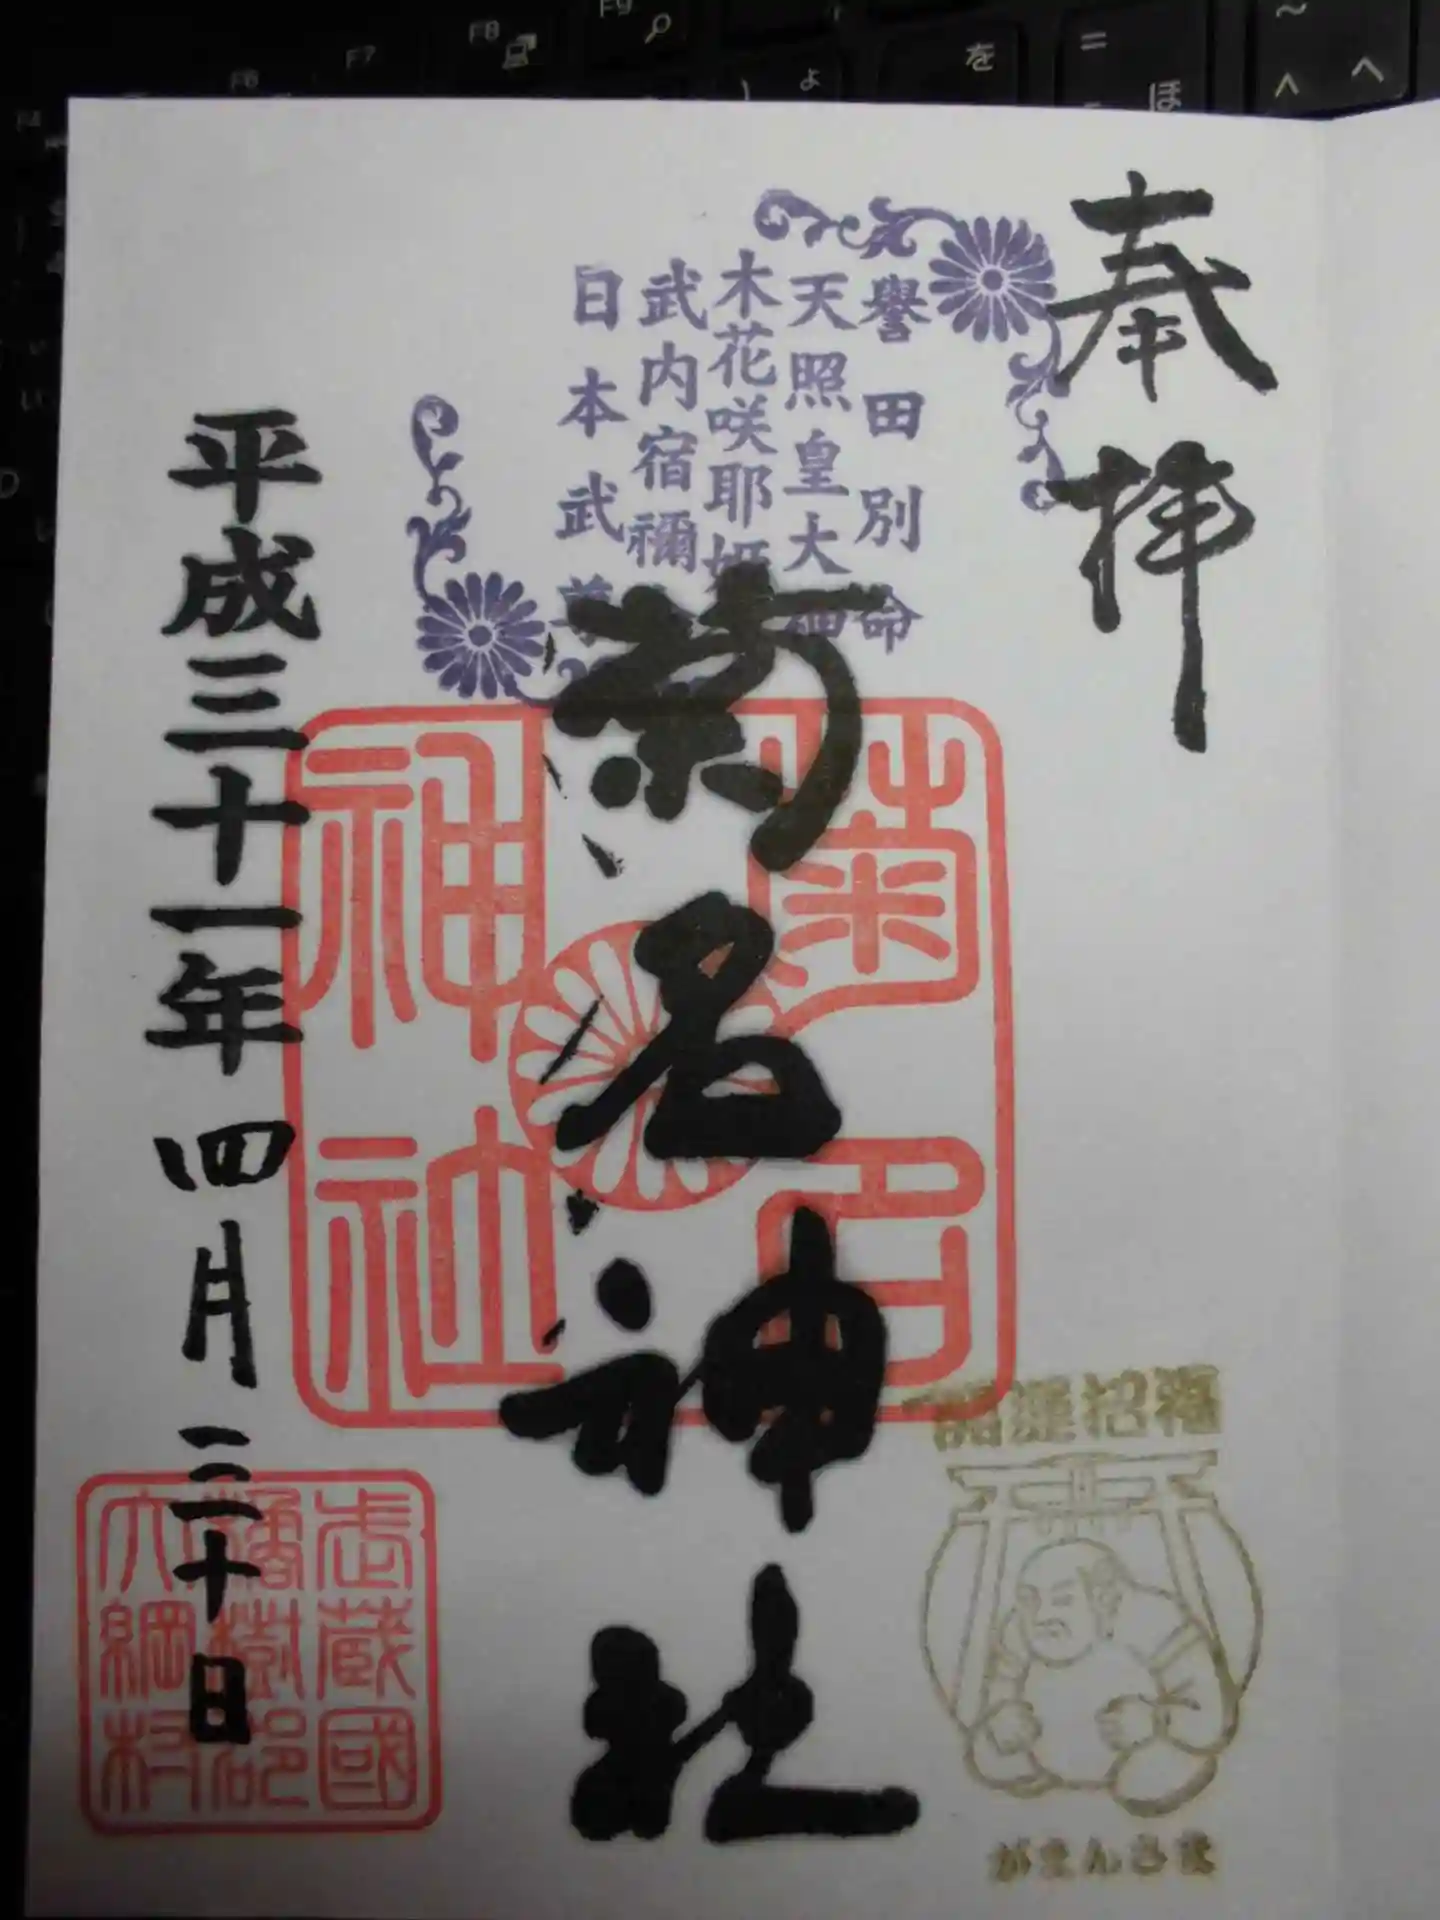 奉拝
譽田別命
天照皇大神
木花咲耶姫
武内宿禰
日本武尊
菊名神社
菊名
神社
平成三十一年四月三十日
武蔵國
橘樹郡
大綱村
がまんさま
F6
F7
F8
F9
を
ほ
へ